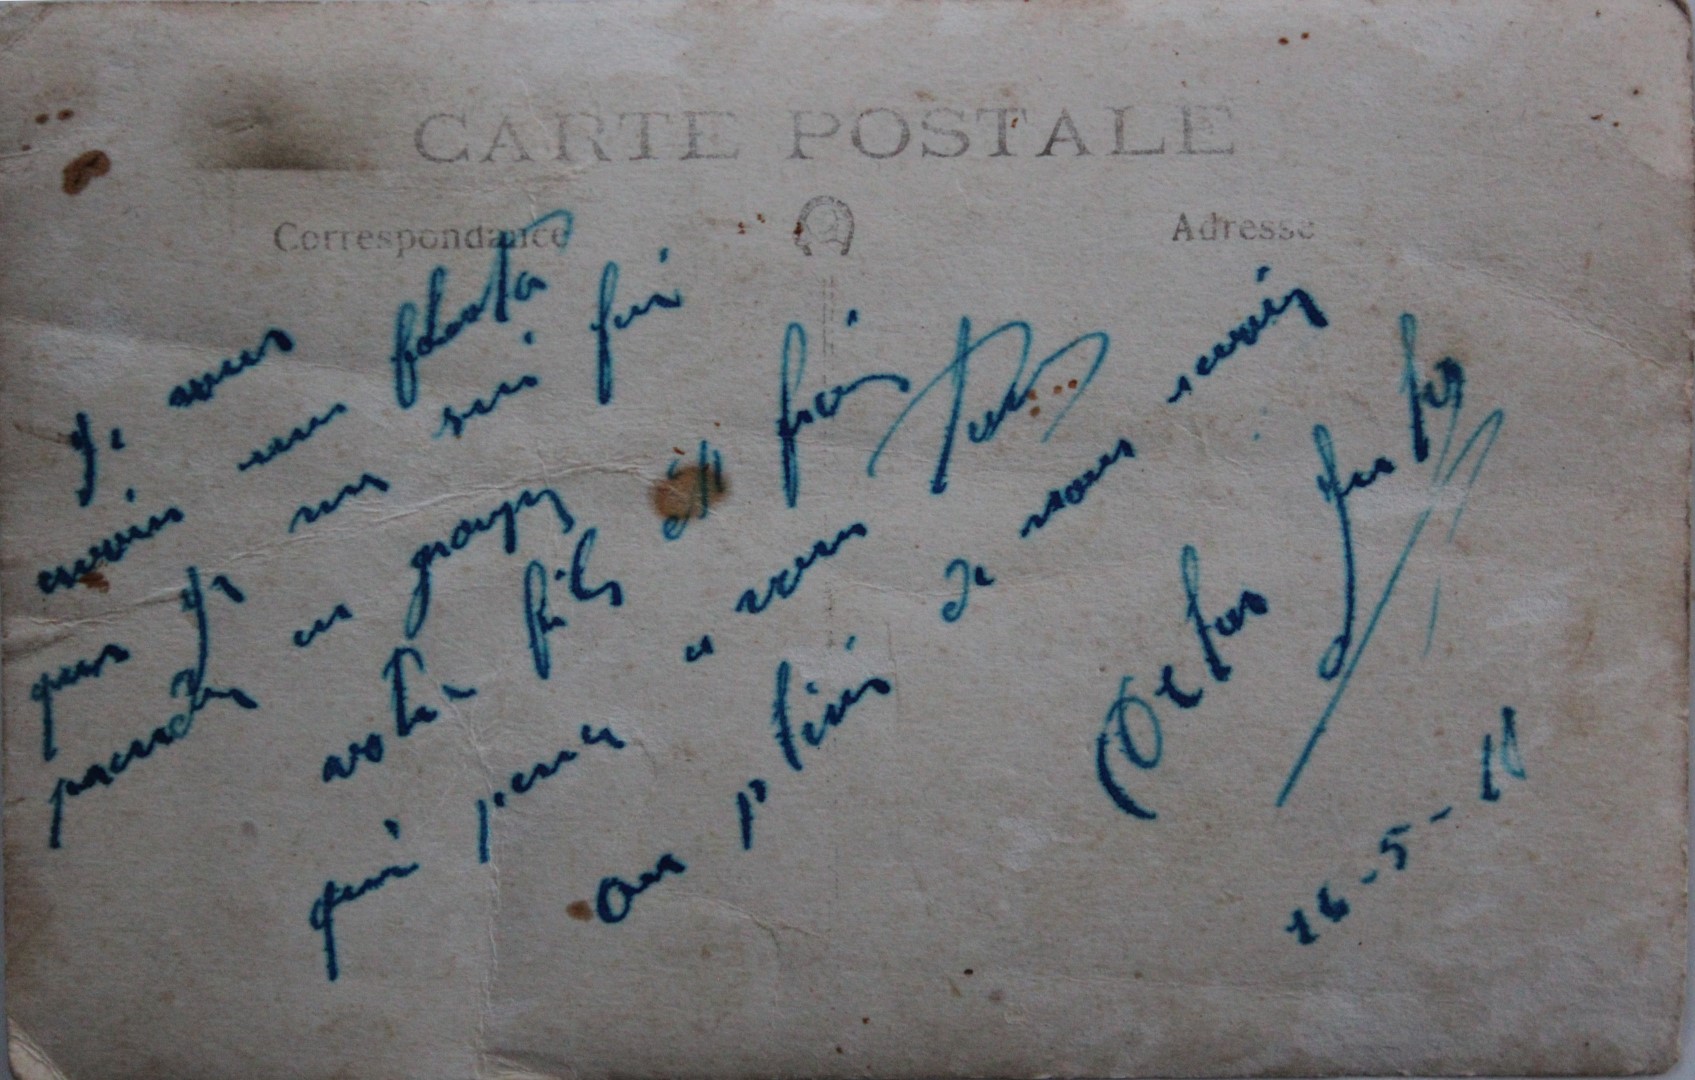 CARTE POSTALE
Correspondance
Adresse
Je vous
envoie une photo
que je me suis fai
prendre en groupe
votre fils et
qui pense a vous
au plaisir de vous revoir
16-5-18